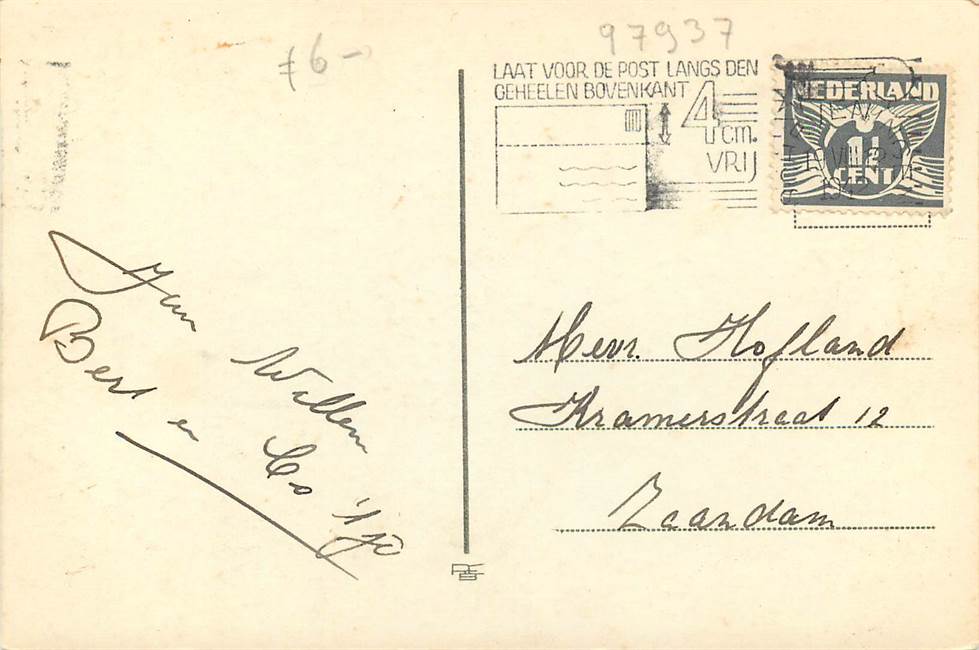 97937
f 6-
LAAT VOOR DE POST LANGS DEN
GEHEELEN BOVENKANT
4 cm.
VRIJ
NEDERLAND
1½
CENT
Jan Willem
Bert en Co
Mevr. Hofland
Kramerstraat 12
Zaandam